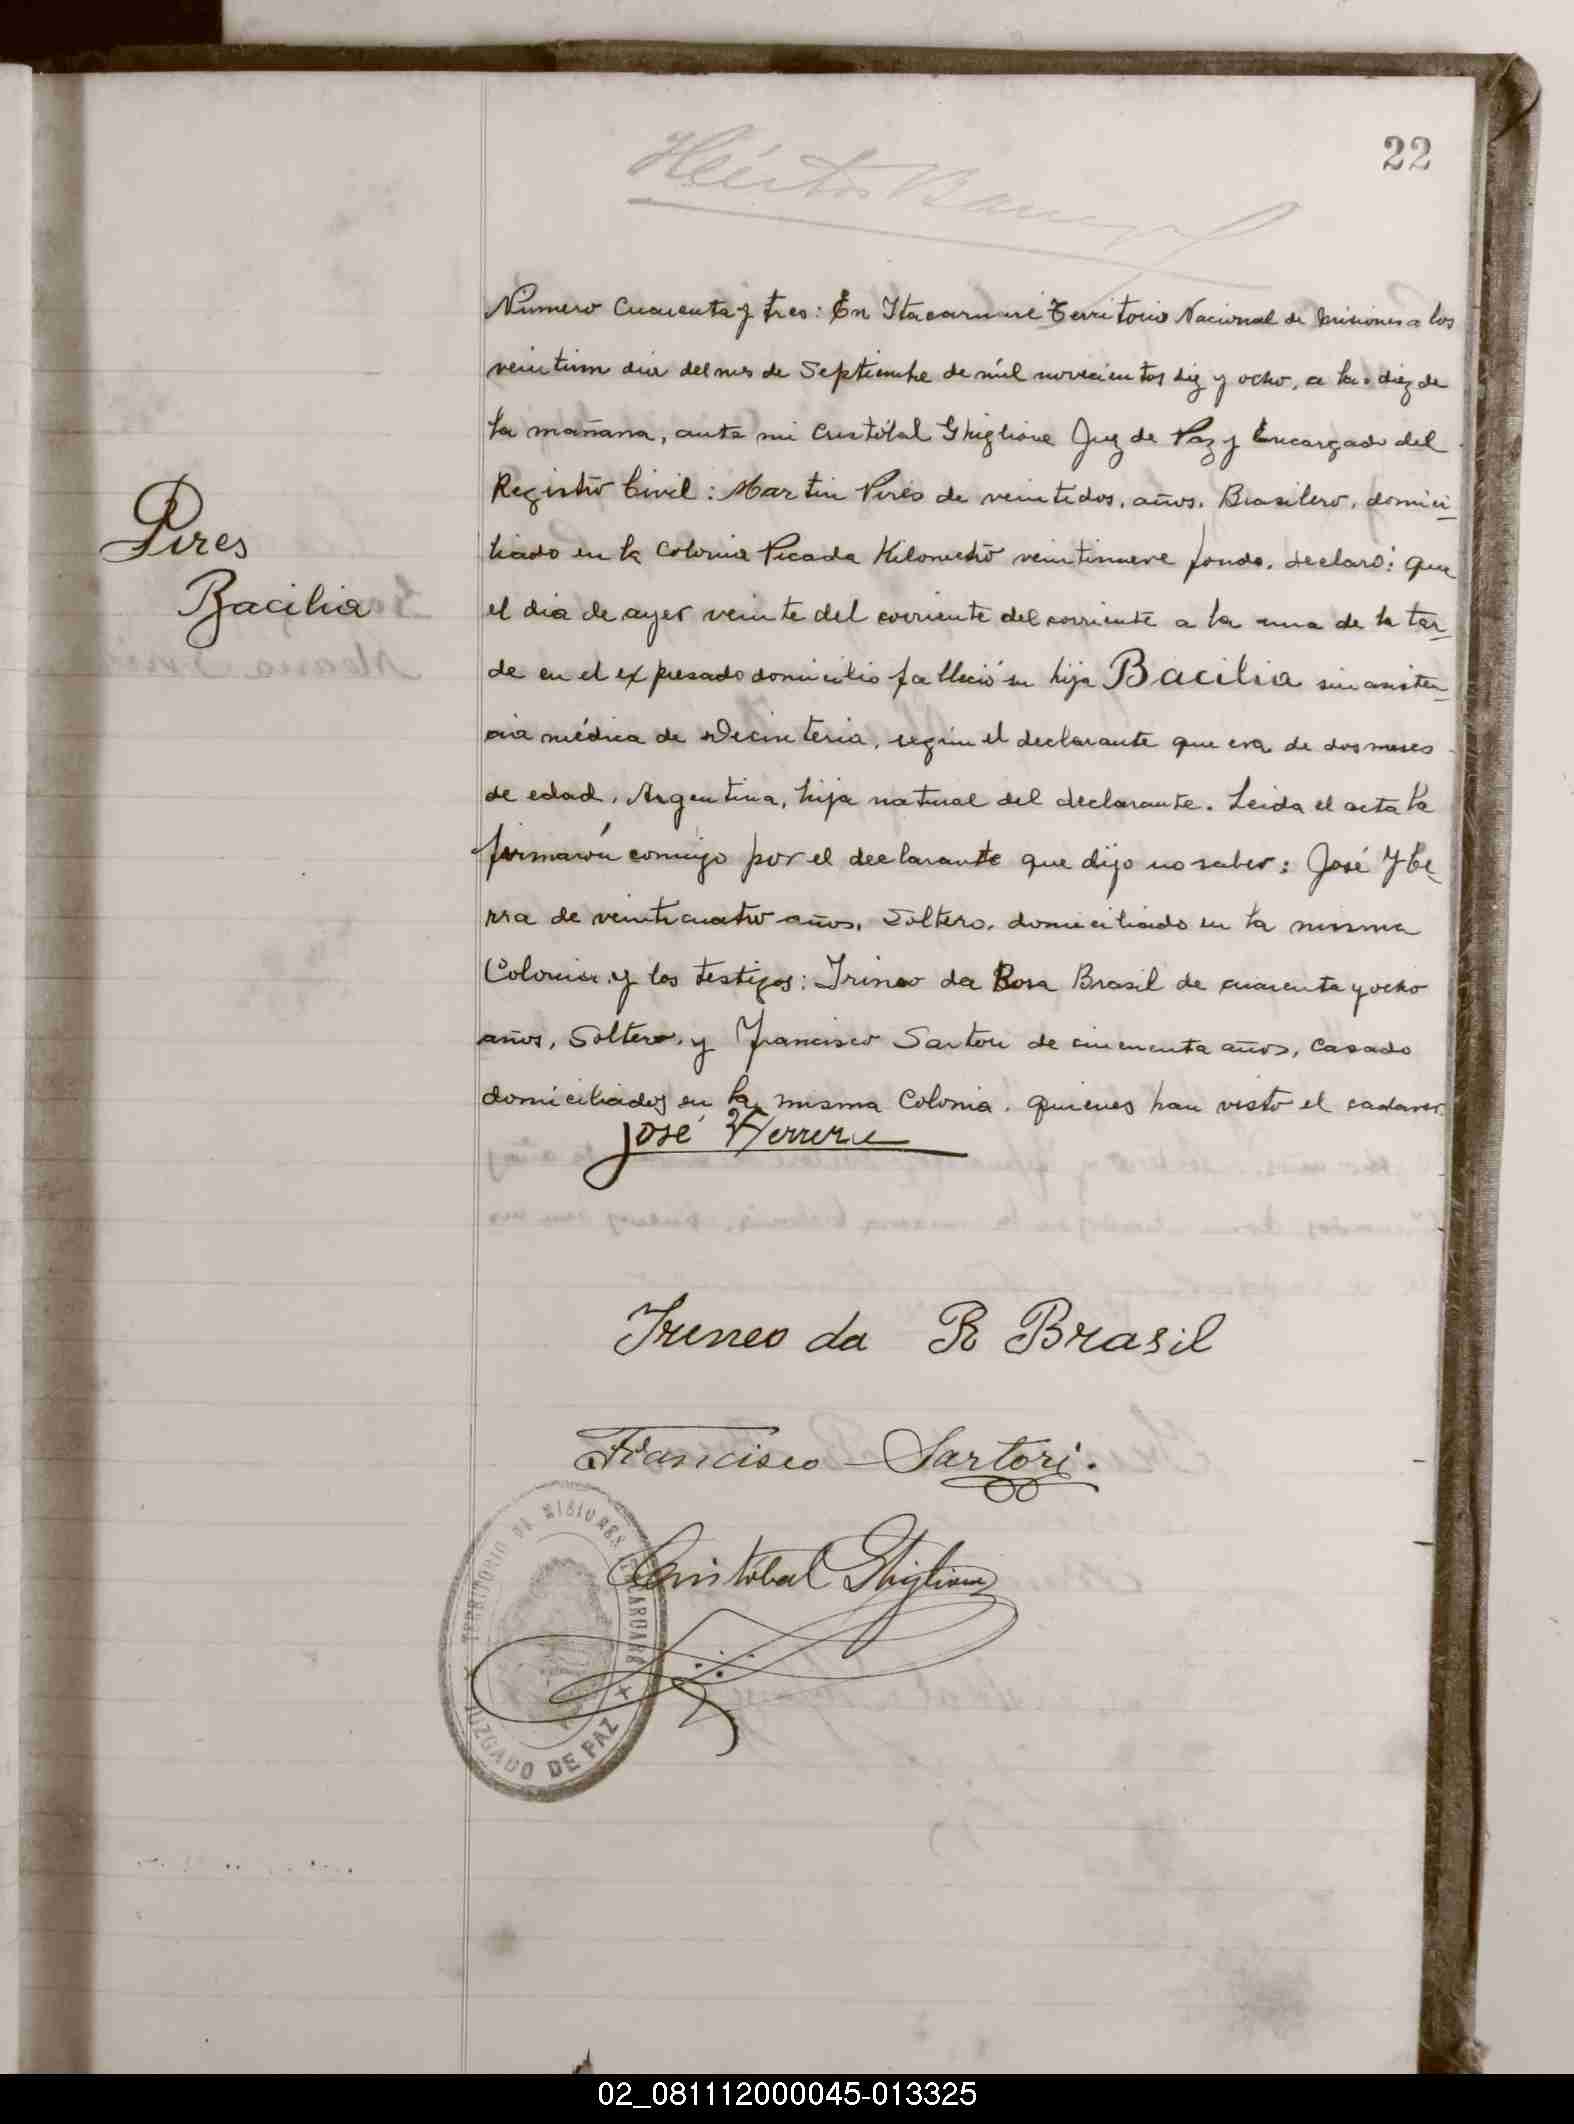 22
Héctor
Número cuarenta y tres: En Itacaruaré Territorio Nacional de Misiones a los
veintiun dia del mes de Septiembre de mil novecientos diez y ocho, a las diez de
la mañana, ante mi Cristóbal Ghiglione Juez de Paz y Encargado del
Registro Civil: Martin Pires de veintidos, años, Brasilero, domici-
liado en la Colonia Picada Kilometro veintinueve fondo, declaró: que
el dia de ayer veinte del corriente del corriente a la una de la tar-
de en el expresado domicilio falleció su hija Bacilia sin asisten-
cia médica de Decinteria, según el declarante que era de dos meses
de edad, Argentina, hija natural del declarante. Leida el acta la
firmarón comigo por el declarante que dijo no saber: José
rra de veinticuatro años, Soltero, domiciliado en la misma
Colonia y los testigos: Irineo da Rosa Brasil de cuarenta y ocho
años, Soltero, y Francisco Sartori de cincuenta años, casado
domiciliados en la misma Colonia. quienes han visto el cadaver.
Pires
Bacilia
José Yferrera
Ireneo da R Brasil
Francisco Sartori.
Cristóbal Ghiglione
TERRITORIO DE MISIONES ITACARUARÉ
JUZGADO DE PAZ
02_081112000045-013325